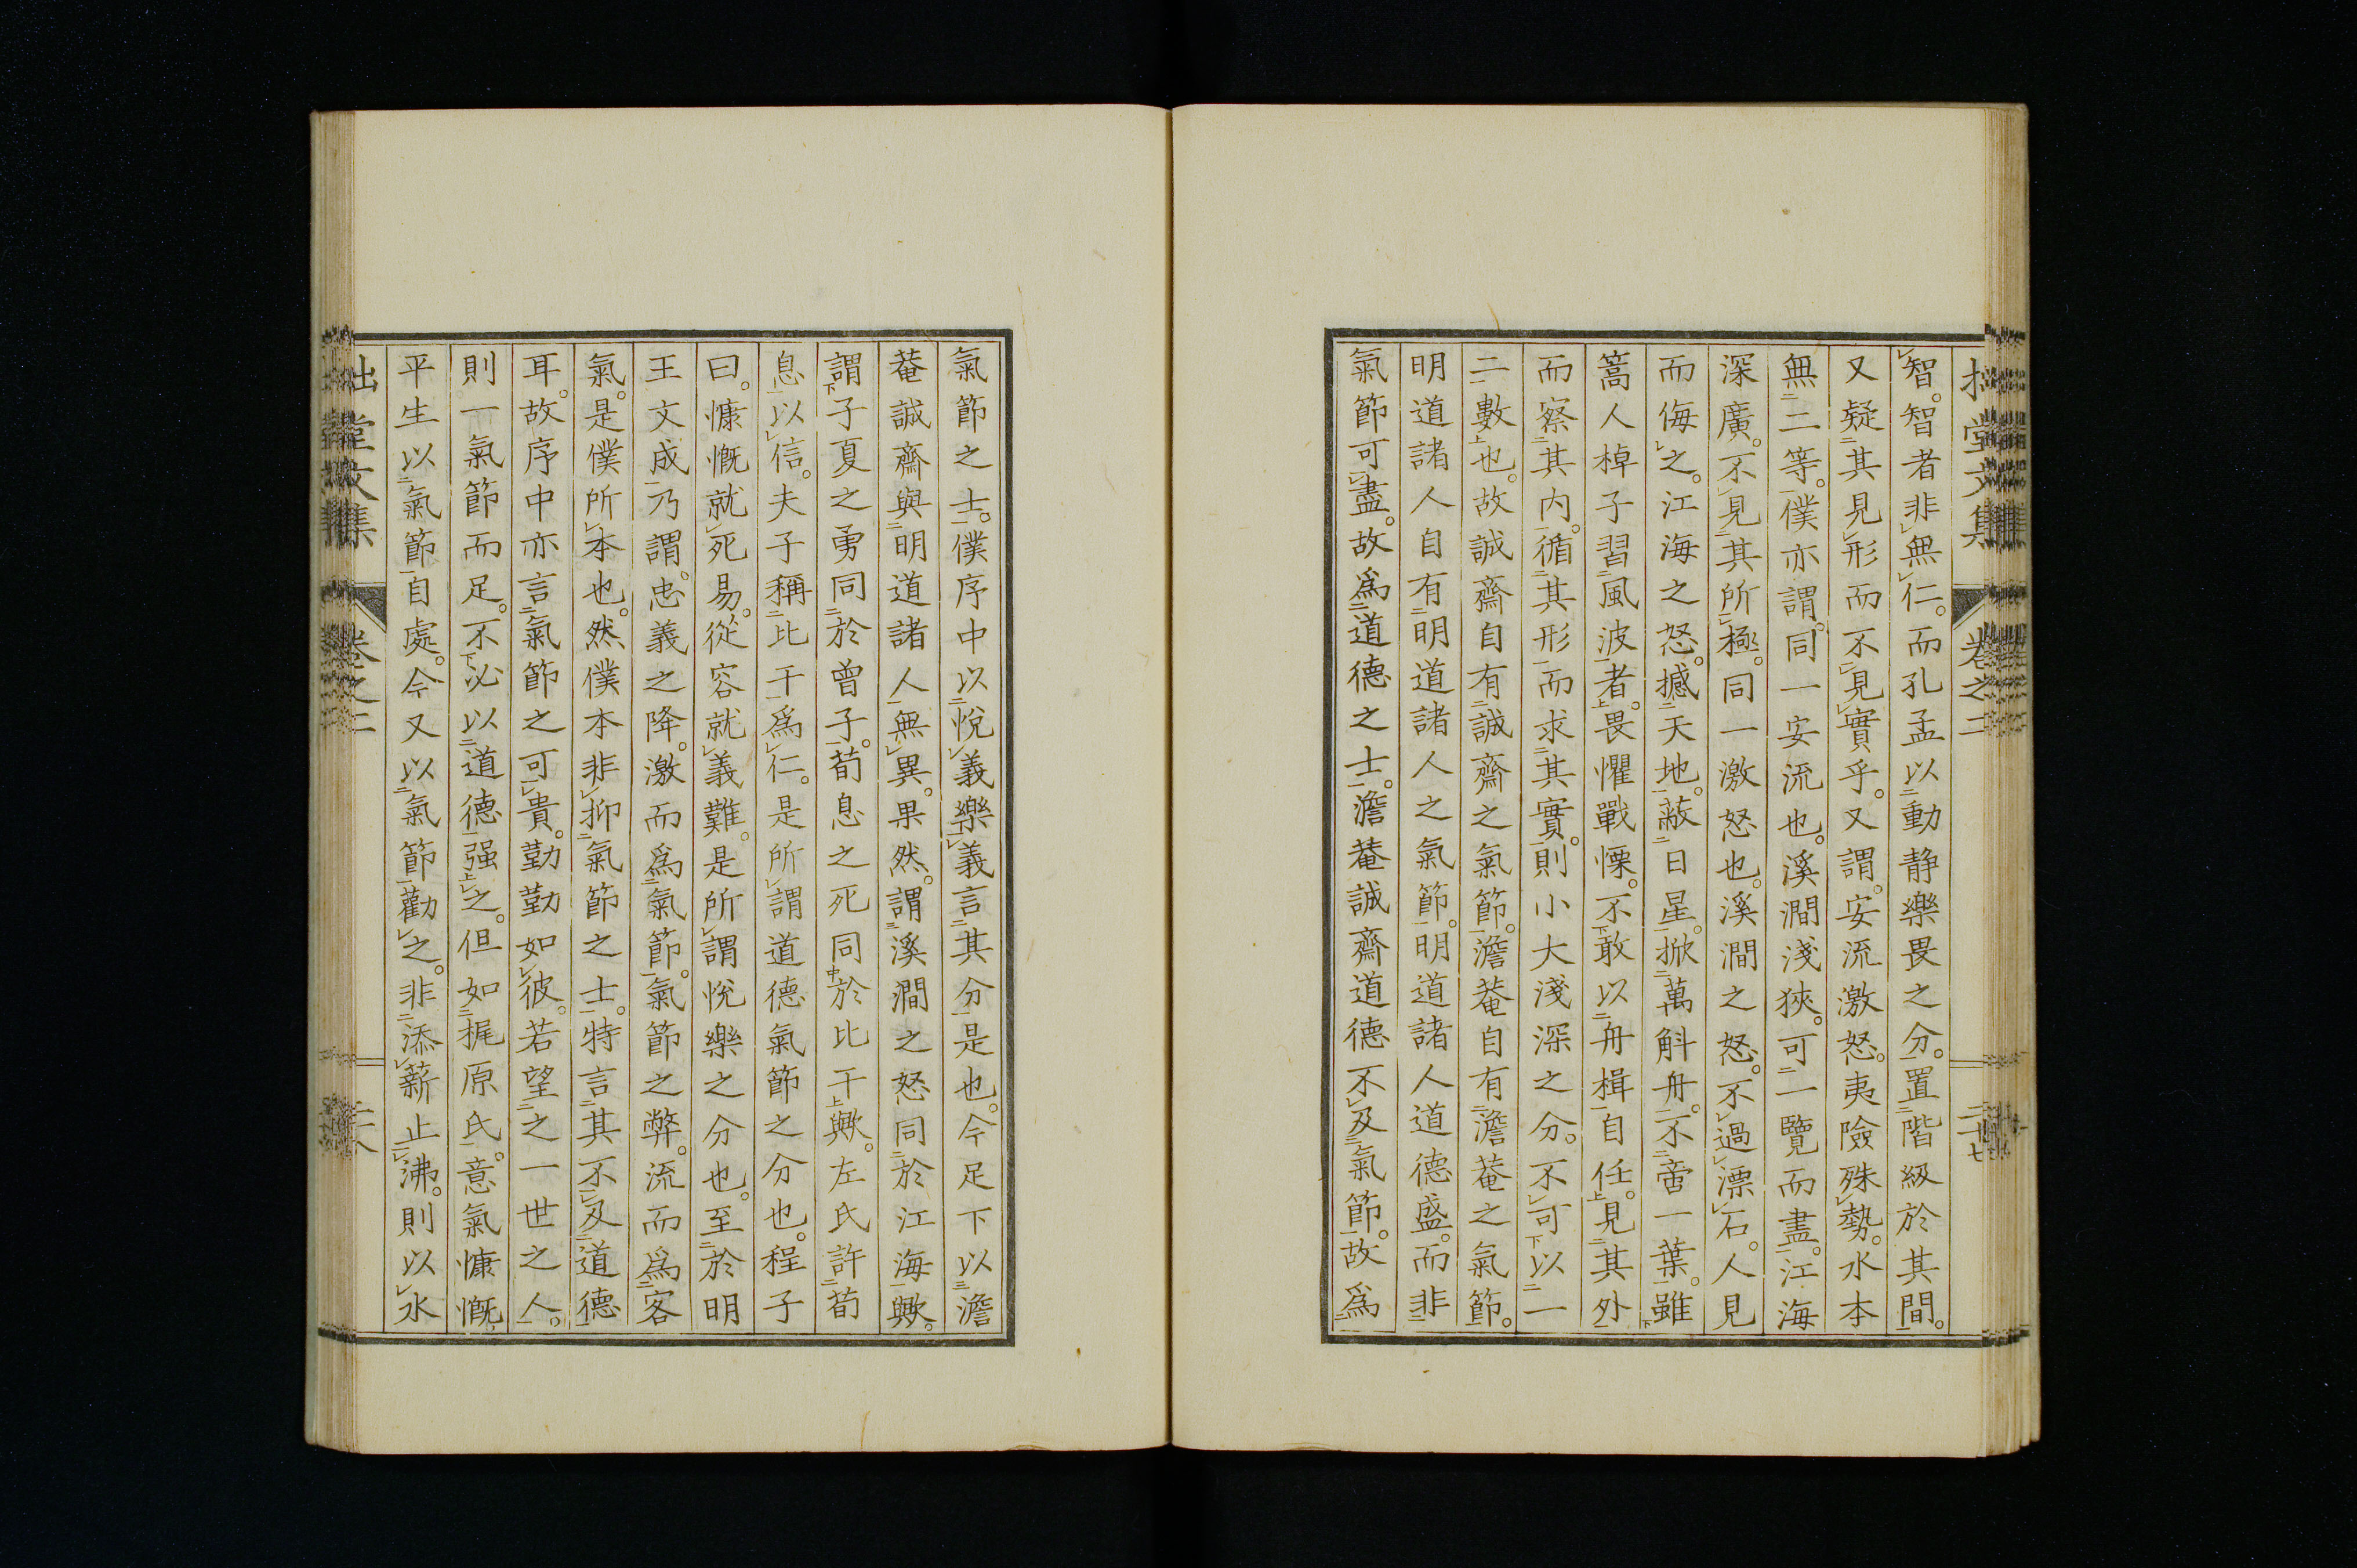 拙堂文集 卷之二 二十七
智。智者非無仁。而孔孟以動静樂畏之分。置階級於其間。
又疑其見形而不見實乎。又謂。安流激怒。夷險殊勢。水本
無二等。僕亦謂。同一安流也。溪澗淺狹。可一覽而盡。江海
深廣。不見其所極。同一激怒也。溪澗之怒。不過漂石。人見
而侮之。江海之怒。撼天地。蔽日星。掀萬斛舟。不啻一葉。雖
篙人棹子習風波者。畏懼戰慄。不敢以舟楫自任。見其外
而察其内。循其形而求其實。則小大淺深之分。不可以一
二數也。故誠齋自有誠齋之氣節。澹菴自有澹菴之氣節。
明道諸人自有明道諸人之氣節。明道諸人道德盛。而非
氣節可盡。故爲道德之士。澹菴誠齋道德不及氣節。故爲
氣節之士。僕序中以悅義樂義言其分是也。今足下以澹
菴誠齋與明道諸人無異。果然。謂溪澗之怒同於江海歟。
謂子夏之勇同於曾子。荀息之死同於比干歟。左氏許荀
息以信。夫子稱比干爲仁。是所謂道德氣節之分也。程子
曰。慷慨就死易。從容就義難。是所謂悅樂之分也。至於明
王文成乃謂。忠義之降。激而爲氣節。氣節之弊。流而爲客
氣。是僕所本也。然僕本非抑氣節之士。特言其不及道德
耳。故序中亦言氣節之可貴。勤勤如彼。若望之一世之人。
則一氣節而足。不必以道德强之。但如梶原氏。意氣慷慨
平生以氣節自處。今又以氣節勸之。非添薪止沸。則以水
拙堂文集 卷之二